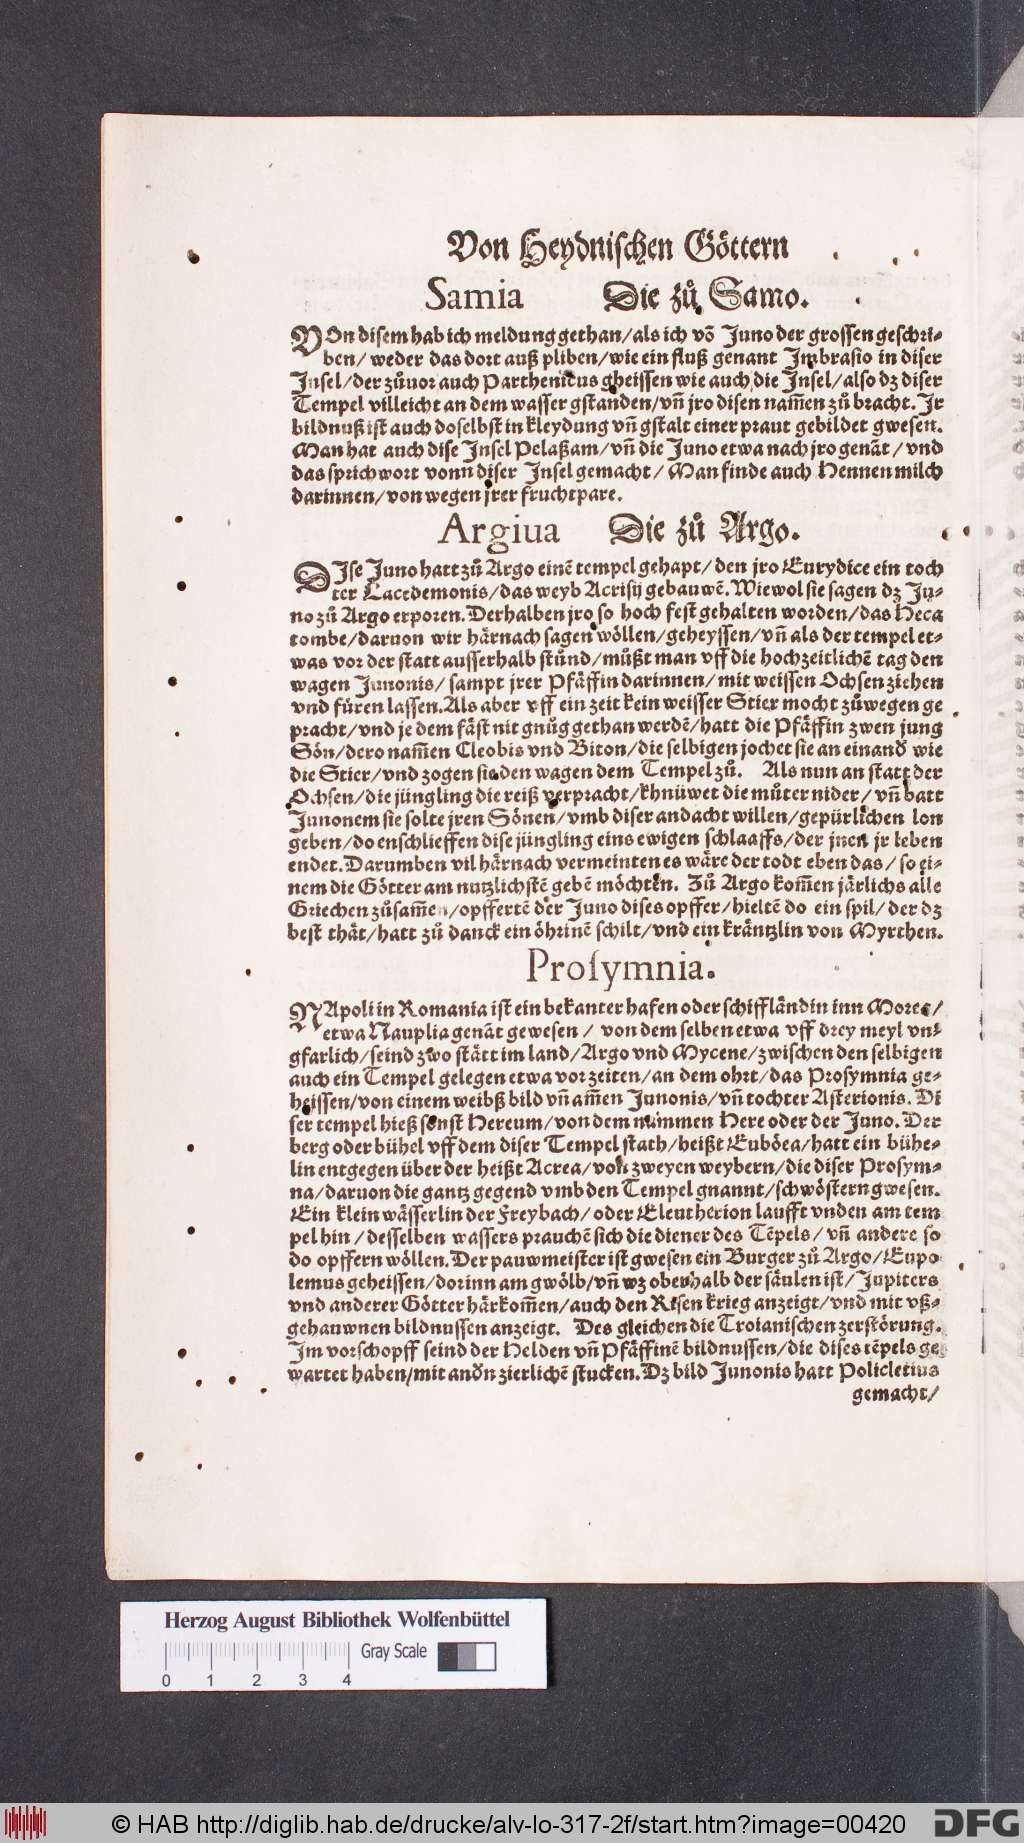 Von Heydnischen Göttern
Samia Die zů Samo.
VOn disem hab ich meldung gethan/ als ich võ Juno der grossen geschri-
ben/ weder das dort auß pliben/ wie ein fluß genant Jmbrasio in diser
Jnsel/ der zůuor auch Parthenicus gheissen wie auch die Jnsel/ also dz diser
Tempel villeicht an dem wasser gstanden/ vñ jro disen nam̃en zů bracht. Jr
bildnuß ist auch doselbst in kleydung vñ gstalt einer praut gebildet gwesen.
Man hat auch dise Jnsel Pelaßam/ vñ die Juno etwa nach jro genãt/ vnd
das sprichwort vonn diser Jnsel gemacht/ Man finde auch Hennen milch
darinnen/ von wegen jrer fruchtpare.
Argiua Die zů Argo.
DJse Juno hatt zů Argo einẽ tempel gehapt/ den jro Eurydice ein toch
ter Lacedemonis/ das weyb Acrisij gebauwẽ. Wiewol sie sagen dz Ju-
no zů Argo erporen. Derhalben jro so hoch fest gehalten worden/ das Heca
tombe/ daruon wir härnach sagen wöllen/ geheyssen/ vñ als der tempel et-
was vor der statt ausserhalb stůnd/ můßt man vff die hochzeitlichẽ tag den
wagen Junonis/ sampt jrer Pfäffin darinnen/ mit weissen Ochsen ziehen
vnd füren lassen. Als aber vff ein zeit kein weisser Stier mocht zůwegen ge
pracht/ vnd je dem fäst nit gnůg gethan werdẽ/ hatt die Pfäffin zwen jung
Sön/ dero nam̃en Cleobis vnd Biton/ die selbigen jochet sie an einand̃ wie
die Stier/ vnd zogen sie den wagen dem Tempel zů. Als nun an statt der
Ochsen/ die jüngling die reiß verpracht/ khnüwet die můter nider/ vñ batt
Junonem sie solte jren Sönen/ vmb diser andacht willen/ gepürlichen lon
geben/ do enschlieffen dise jüngling eins ewigen schlaaffs/ der jnen jr leben
endet. Darumben vil härnach vermeinten es wäre der todt eben das/ so ei-
nem die Götter am nutzlichstẽ gebẽ möchten. Zů Argo kom̃en järlichs alle
Griechen zůsam̃en/ opffertẽ der Juno dises opffer/ hieltẽ do ein spil/ der dz
best thät/ hatt zů danck ein öhrinẽ schilt/ vnd ein kräntzlin von Myrthen.
Prosymnia.
NApoli in Romania ist ein bekanter hafen oder schiffländin inn Morea/
etwa Nauplia genãt gewesen/ von dem selben etwa vff drey meyl vn-
gfarlich/ seind zwo stätt im land/ Argo vnd Mycene/ zwischen den selbigen
auch ein Tempel gelegen etwa vor zeiten/ an dem ohrt/ das Prosymnia ge-
heissen/ von einem weibß bild vñ am̃en Junonis/ vñ tochter Asterionis. Di
ser tempel hieß sonst Hereum/ von dem nammen Here oder der Juno. Der
berg oder bühel vff dem diser Tempel stath/ heißt Euböea/ hatt ein bühe-
lin entgegen über der heißt Acrea/ von zweyen weybern/ die diser Prosym-
na/ daruon die gantz gegend vmb den Tempel gnannt/ schwöstern gwesen.
Ein klein wässerlin der Freybach/ oder Eleutherion laufft vnden am tem
pel hin/ desselben wassers prauchẽ sich die diener des Tẽpels/ vñ andere so
do opffern wöllen. Der pauwmeister ist gwesen ein Burger zů Argo/ Eupo
lemus geheissen/ dorinn am gwölb/ vñ wz oberhalb der säulen ist/ Jupiters
vnd anderer Götter härkom̃en/ auch den Risen krieg anzeigt/ vnd mit vß-
gehauwnen bildnussen anzeigt. Des gleichen die Troianischen zerstörung.
Jm vorschopff seind der Helden vñ Pfäffinẽ bildnussen/ die dises tẽpels ge
wartet haben/ mit and̃n zierlichẽ stucken. Dz bild Junonis hatt Policletius
gemacht/
Herzog August Bibliothek Wolfenbüttel
Gray Scale
0 1 2 3 4
© HAB http://diglib.hab.de/drucke/alv-lo-317-2f/start.htm?image=00420
DFG